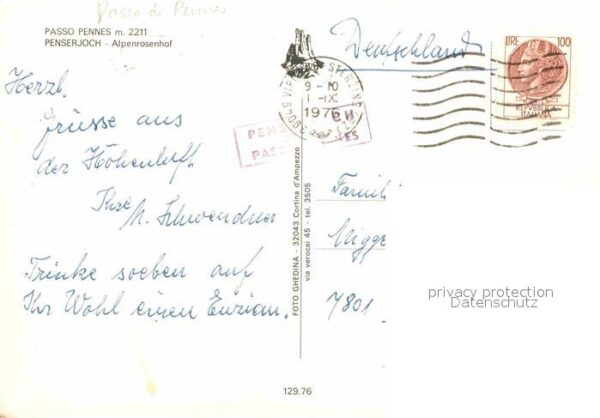 Passo di Pennes
PASSO PENNES m. 2211
PENSERJOCH - Alpenrosenhof
Deutschland
LIRE 100
ITALIANA
9 - 10
1 - IX
1976
PASS
Herzl.
Grüsse aus
der Höhenluft
Ihre
M. Schwendner
Trinke soeben auf
Ihr Wohl einen Enzian.
FOTO GHEDINA - 32043 Cortina d'Ampezzo
via verocai 45 - tel. 3505
Famil
7801
privacy protection
Datenschutz
129.76